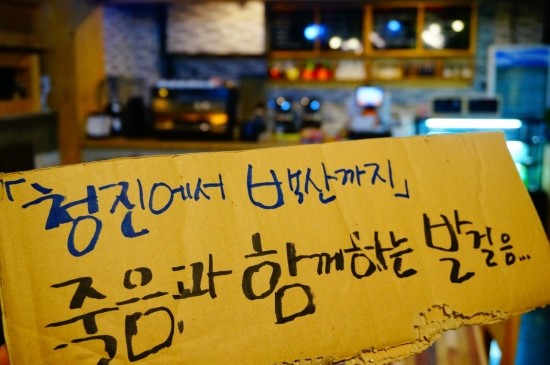 「청진에서 백산까지」
죽음과 함께하는 발걸음...